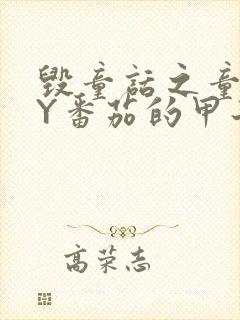 毁童话之童
Y番茄的甲
高荣志